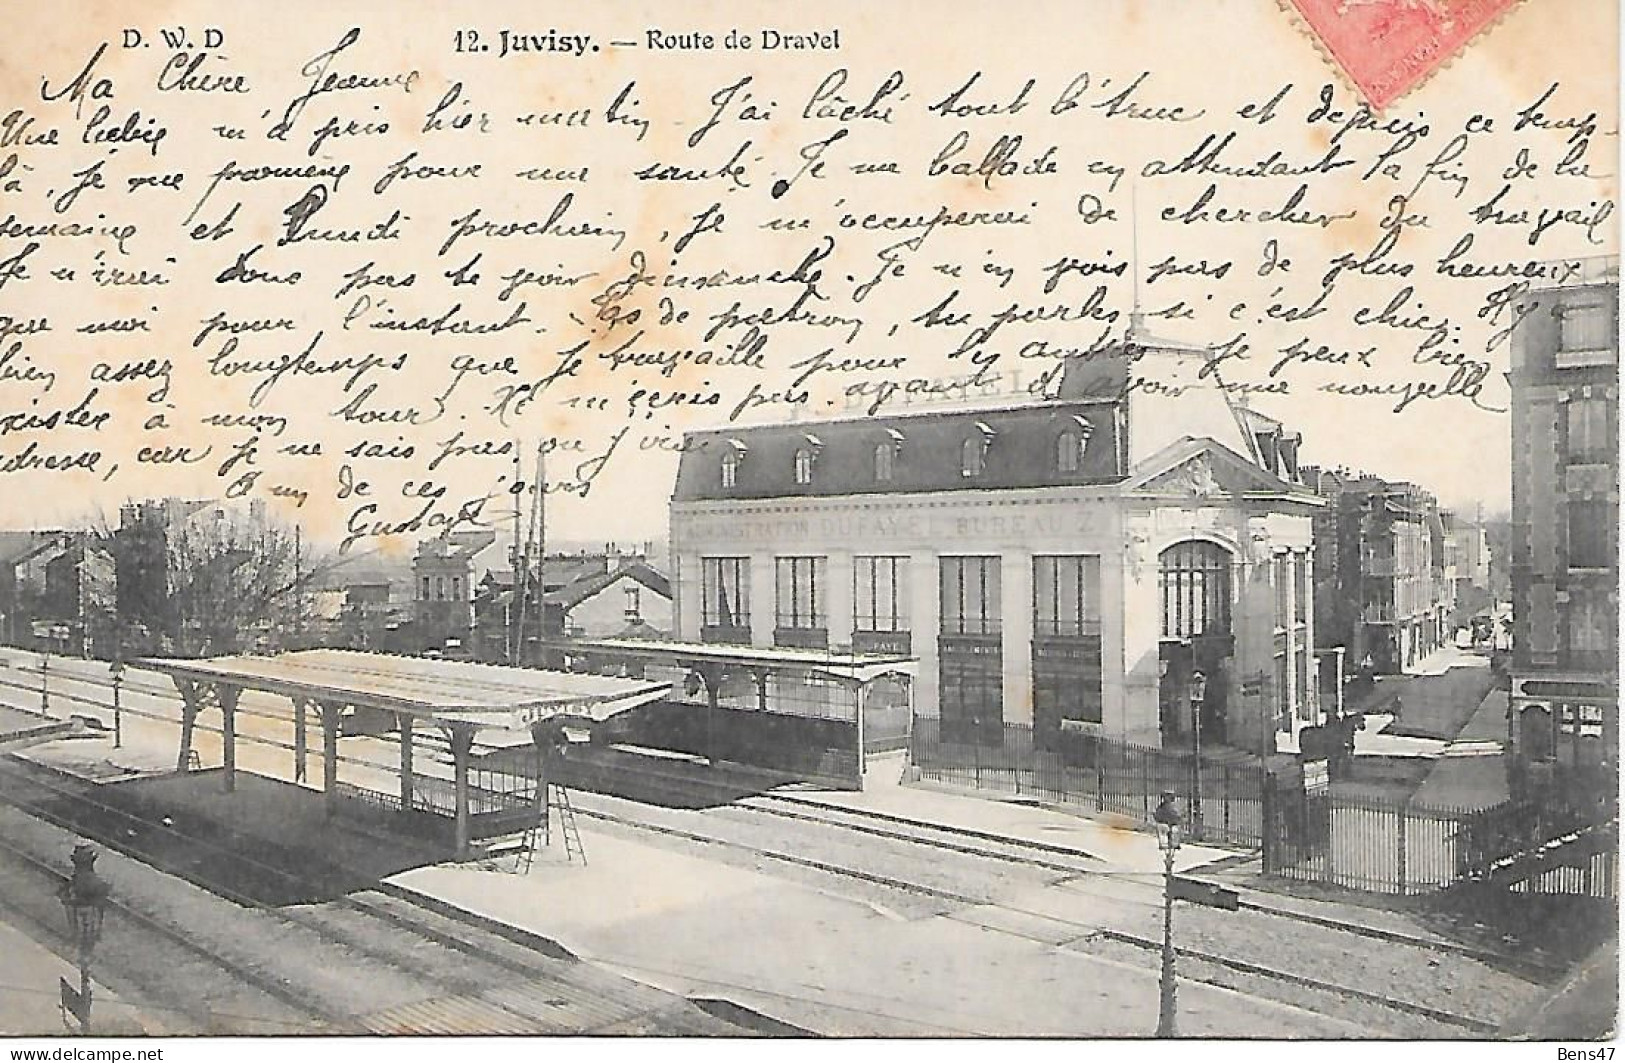 D. W. D
12. Juvisy. — Route de Dravel
Ma Chère Jeanne
Une lubie m'a pris hier matin. J'ai lâché tout l'truc et depuis ce temps-
là, je me promène pour une santé. Je me ballade en attendant la fin de la
semaine et Lundi prochain, je m'occuperai de chercher du travail
Je n'irai donc pas te voir dimanche. Je n'en vois pas de plus heureux
que moi pour l'instant. Pas de patron, tu parles si c'est chic. Il y a
bien assez longtemps que je travaille pour les autres je peux bien
exister à mon tour. Ne m'écris pas avant d'avoir une nouvelle
adresse, car je ne sais pas où j'irai
A un de ces jours
Gustave
DUFAYEL
ADMINISTRATION DUFAYEL BUREAUX
JUVISY
Bens47